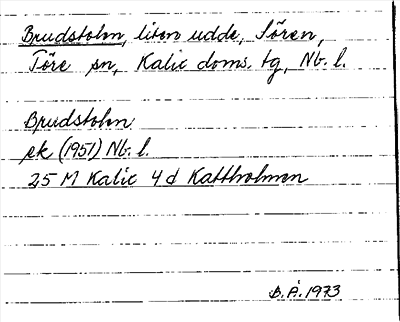 Brudstolen, liten udde, Sören,
Töre sn, Kalix doms. tg, Nb. l.
Brudstolen
ek (1951) Nb. l.
25 M Kalix 4 d Kattholmen
B.Å. 1973